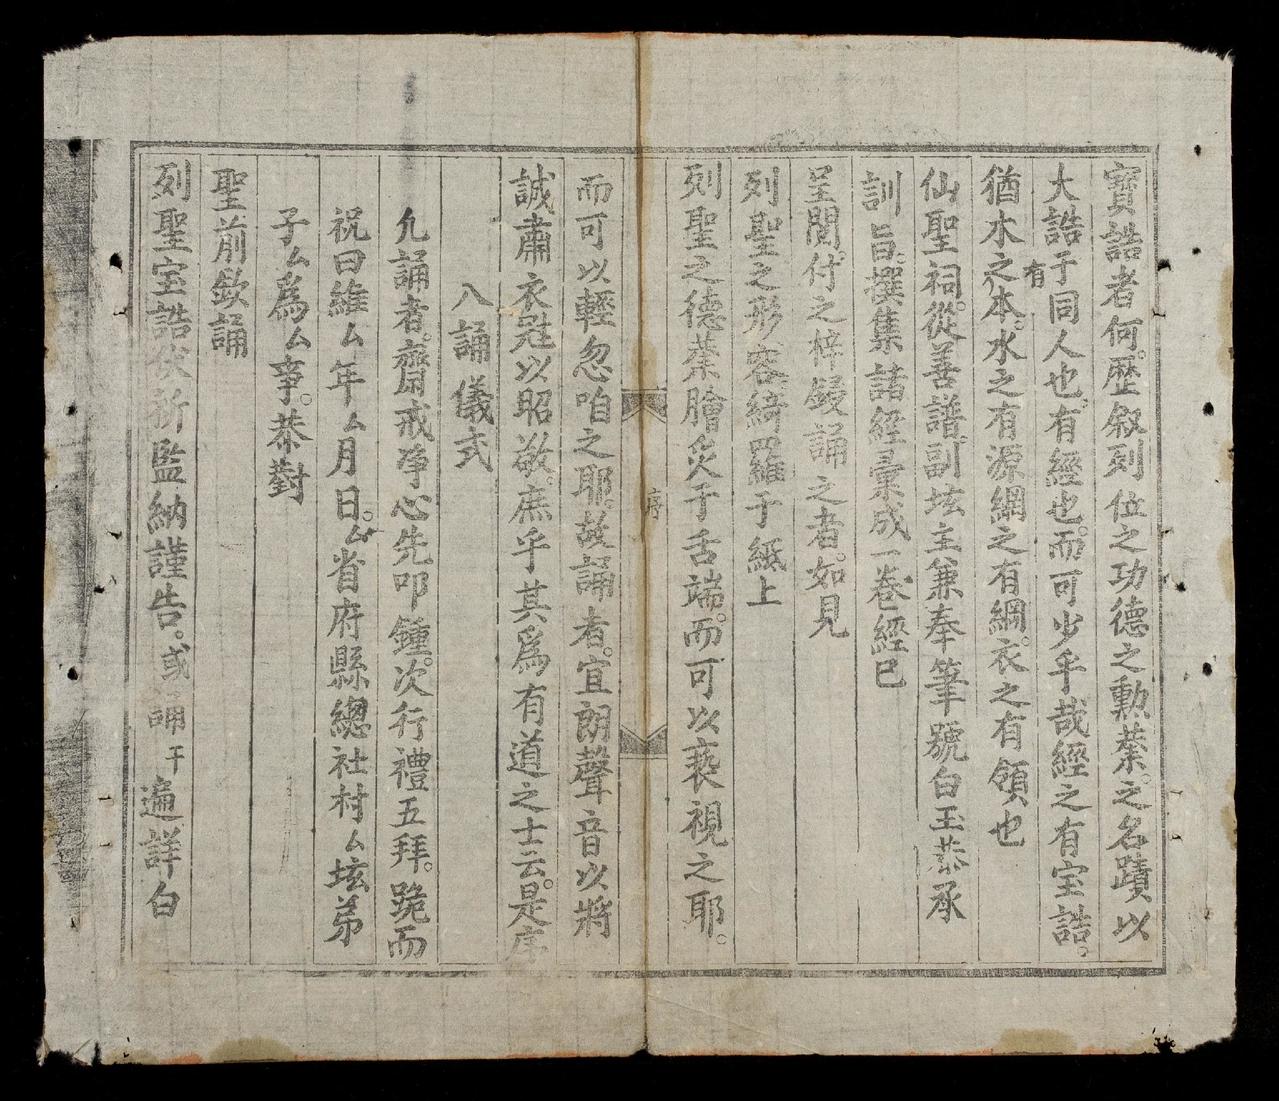 寶誥者何。歷叙列位之功德之勲業。之名蹟以
大誥于同人也。有經也。而可少乎哉經之有宝誥。
猶木之有本。水之有源綱之有綱。衣之有領也
仙聖祠。從善譜副坛主兼奉筆號白玉恭承
訓旨。撰集諸經彙成一卷經已
呈閲。付之梓鋟誦之者。如見
列聖之形容綺羅于紙上
列聖之德業膾炙于舌端。而可以褻視之耶。
序
而可以輕忽咱之耶。故誦者。宜朗聲音以將
誠肅衣冠以昭敬。庶乎其爲有道之士云。是序
八誦儀式
凢誦者。齋戒净心先叩鍾。次行禮五拜。跪而
祝曰維厶年厶月日。厶省府縣總社村厶坛弟
子厶爲厶亊。恭對
聖前欽誦
列聖宝誥伏祈監納謹告。或誦干遍詳白